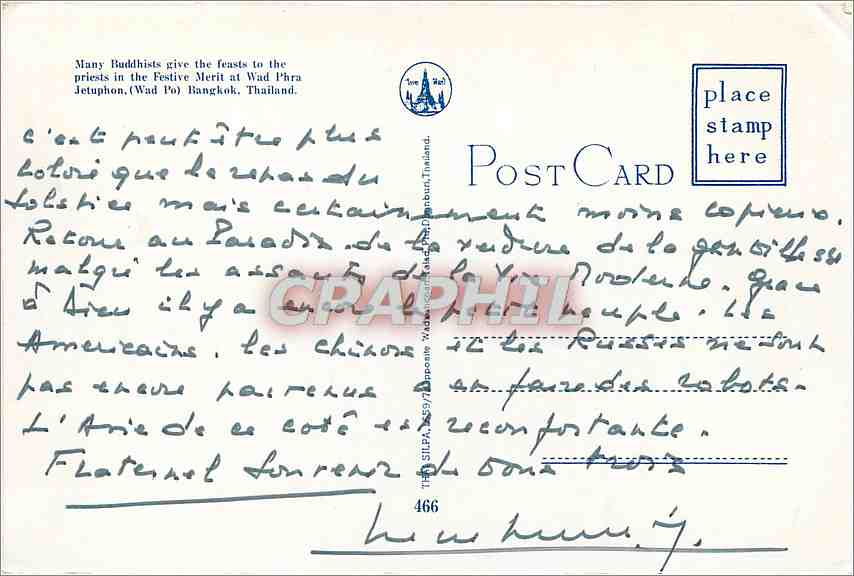 Many Buddhists give the feasts to the
priests in the Festive Merit at Wad Phra
Jetuphon, (Wad Po) Bangkok, Thailand.
POST CARD
place
stamp
here
c'est peut être plus
coloré que le repas du
Solstice mais certainement moins copieux.
Retour au Paradis de la verdure de la gentillesse
malgré les assauts de la Vie Moderne. grace
à Dieu il y a encore le petit peuple. Les
Americains, les chinois et les Russes ne sont
pas encore parvenus à en faire des robots.
L'Asie de ce coté est reconfortante.
Fraternel Souvenir de vous trois
THAI SILPA, 1659/7 opposite
Thailand.
466
CPARHIL